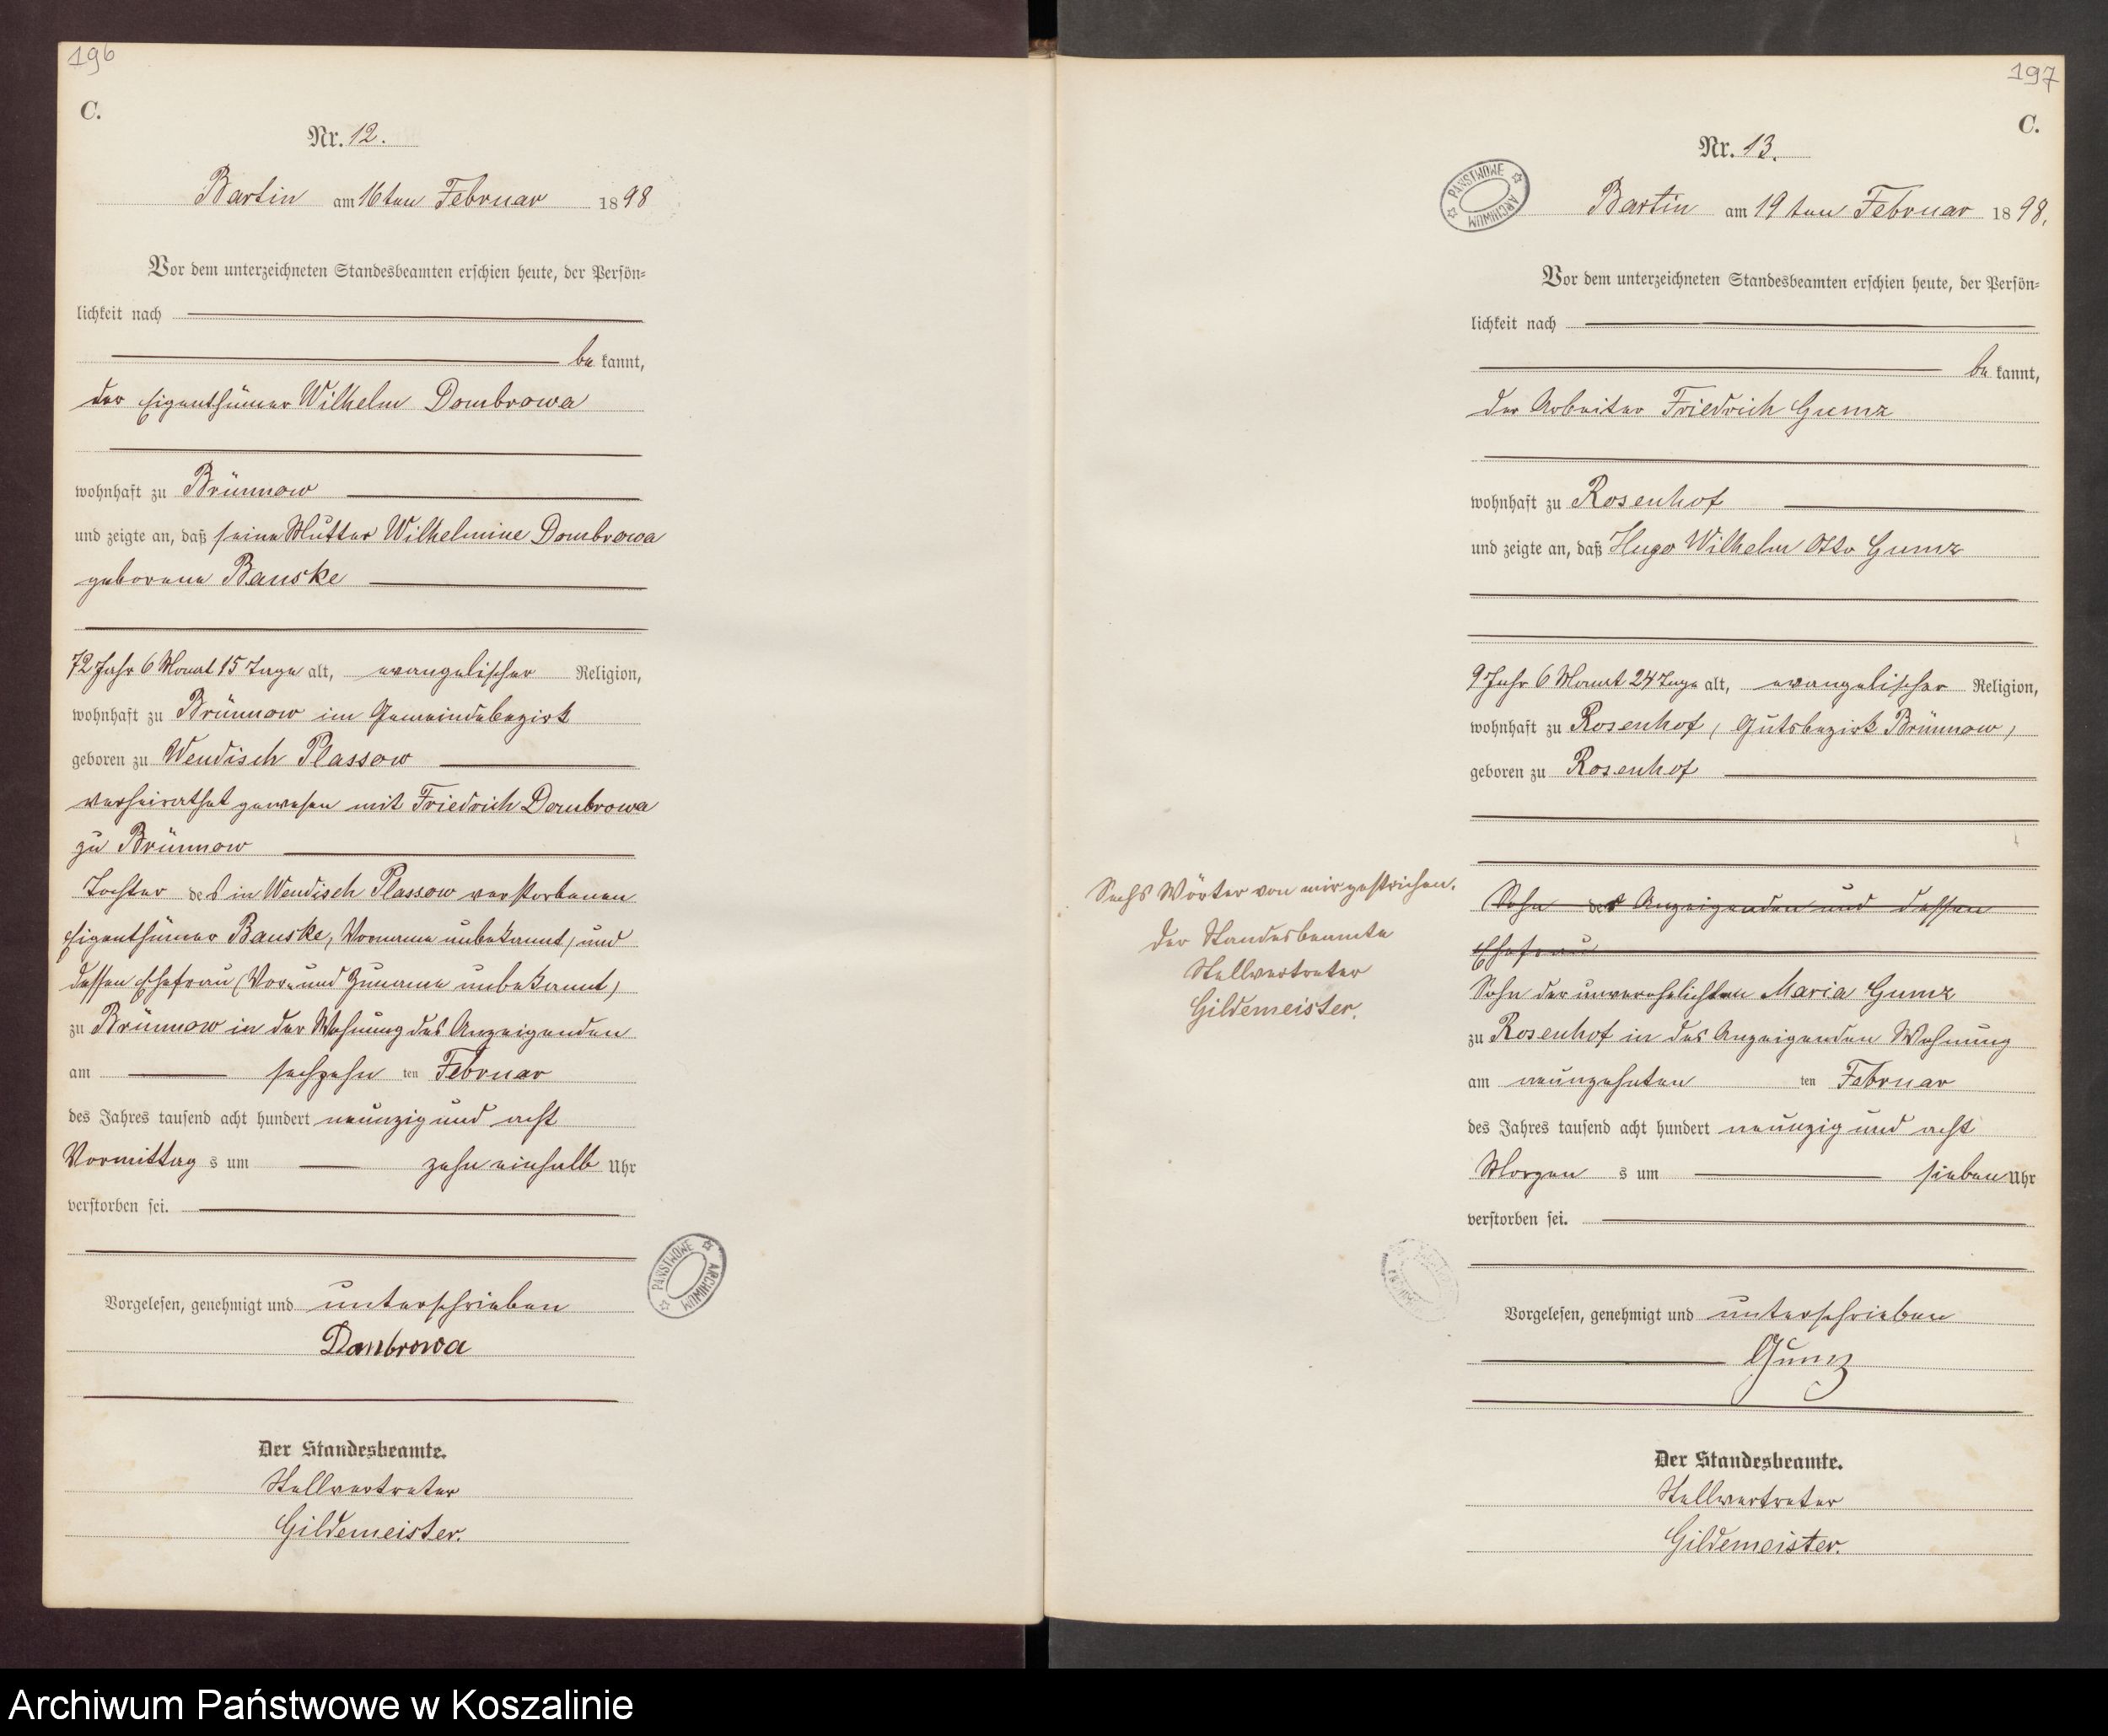 196
C.
Nr. 12.
Bartin am 16ten Februar 1898
Vor dem unterzeichneten Standesbeamten erschien heute, der Persön-
lichkeit nach
be kannt,
der Eigenthümer Wilhelm Dombrowa
wohnhaft zu Brünnow
und zeigte an, daß seine Mutter Wilhelmine Dombrowa
geborene Banske
72 Jahr 6 Monat 15 Tage alt, evangelischer Religion,
wohnhaft zu Brünnow im Gemeindebezirk
geboren zu Wendisch Plassow
verheirathet gewesen mit Friedrich Dombrowa
zu Brünnow
Tochter des in Wendisch Plassow verstorbenen
Eigenthümer Banske, (Vorname unbekannt) und
dessen Ehefrau (Vor- und Zuname unbekannt)
zu Brünnow in der Wohnung des Anzeigenden
am sechzehn ten Februar
des Jahres tausend acht hundert neunzig und acht
Vormittag s um zehn einhalb Uhr
verstorben sei.
Vorgelesen, genehmigt und unterschrieben
Dombrowa
Der Standesbeamte.
Stellvertreter
Gildemeister.
PAŃSTWOWE ARCHIWUM
197
C.
Nr. 13.
PAŃSTWOWE ARCHIWUM
Bartin am 19 ten Februar 1898.
Vor dem unterzeichneten Standesbeamten erschien heute, der Persön-
lichkeit nach
be kannt,
der Arbeiter Friedrich Gumz
wohnhaft zu Rosenhof
und zeigte an, daß Hugo Wilhelm Otto Gumz
9 Jahr 6 Monat 24 Tage alt, evangelischer Religion,
wohnhaft zu Rosenhof, (Gutsbezirk Brünnow)
geboren zu Rosenhof
Sohn des Anzeigenden und dessen
Ehefrau
Sechs Wörter von mir gestrichen.
Der Standesbeamte
Stellvertreter
Gildemeister.
Sohn der unverehelichten Maria Gumz
zu Rosenhof in des Anzeigenden Wohnung
am neunzehnten ten Februar
des Jahres tausend acht hundert neunzig und acht
Morgen s um sieben Uhr
verstorben sei.
Vorgelesen, genehmigt und unterschrieben
Gumz
Der Standesbeamte.
Stellvertreter
Gildemeister.
Archiwum Państwowe w Koszalinie